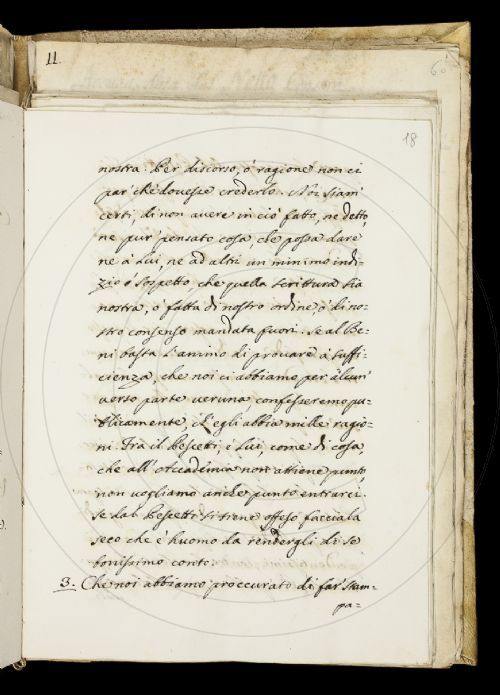 11.
60
18
nostra. Per discorso, ò ragione non ci
par' che dovesse crederlo. Noi siam'
certi, di non avere in ciò fatto, ne detto,
ne pur' pensato cosa, che possa dare
ne à Lui, ne ad altri un minimo indi-
zio ò sospetto che quella scrittura sia
nostra, ò fatta di nostro ordine, ò di no-
stro consenso mandata fuori. Se al Be-
ni basta l'animo di provare à suffi-
cienza, che noi ci abbiamo per alcun'
verso parte veruna, confesseremo pu-
blicamente, ch'egli abbia mille ragio-
ni. Fra il Pescetti, e Lui, come di cosa,
che all'Accademia non attiene punto,
non vogliamo anche punto entrarci.
Se dal Pescetti si tiene offeso faccia la
seco che è huomo da rendergli di se
bonissimo conto.
3. Che noi abbiamo proccurato di far' stam-
pa-